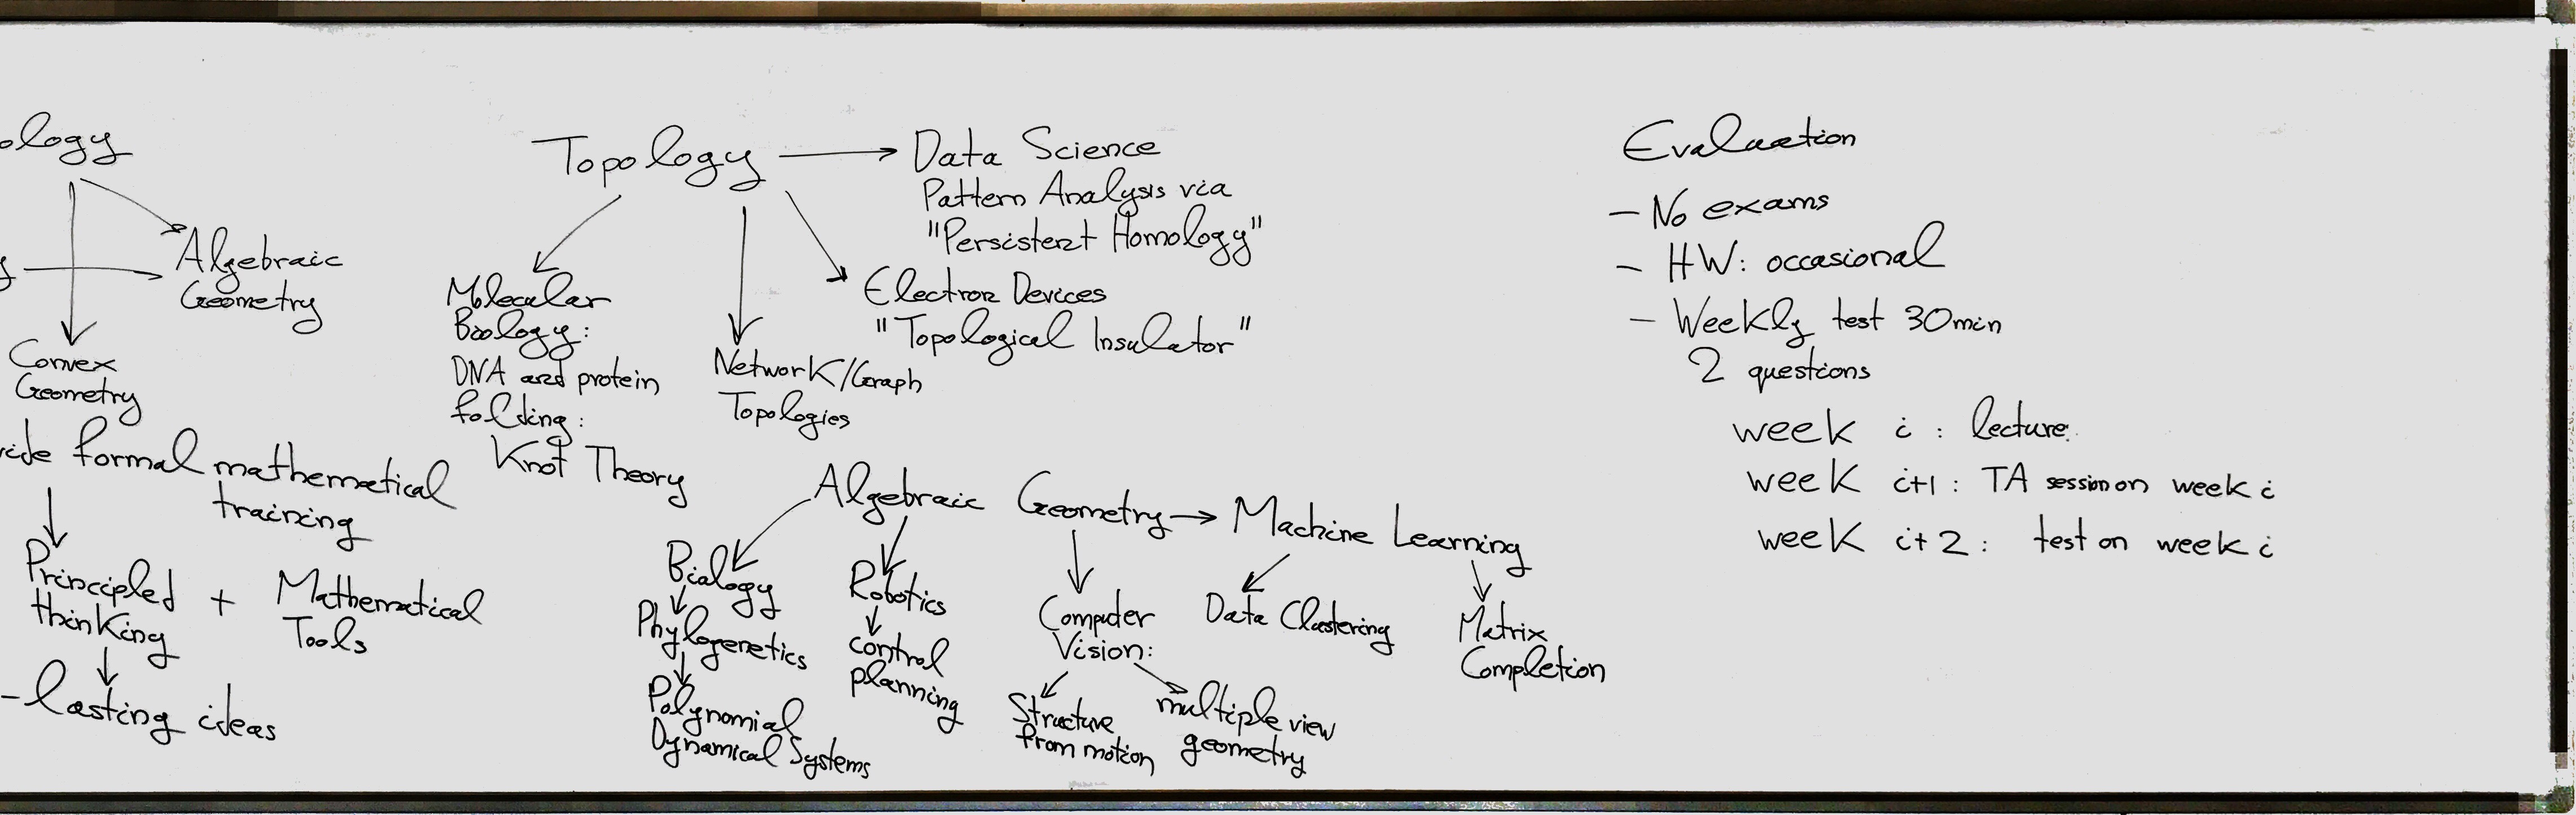 ology
Algebraic
Geometry
Convex
Geometry
formal mathematical
training
Principled
thinking
+ Mathematical
Tools
- lasting ideas
Topology
Data Science
Pattern Analysis via
"Persistent Homology"
Electron Devices
"Topological Insulator"
Network/Graph
Topologies
Molecular
Biology:
DNA and protein
folding:
Knot Theory
Algebraic Geometry
Machine Learning
Biology
Phylogenetics
Polynomial
Dynamical Systems
Robotics
control
planning
Computer
Vision:
Structure
from motion
multiple view
geometry
Data Clustering
Matrix
Completion
Evaluation
- No exams
- HW: occasional
- Weekly test 30min
2 questions
week i : lecture
week i+1 : TA session on week i
week i+2 : test on week i